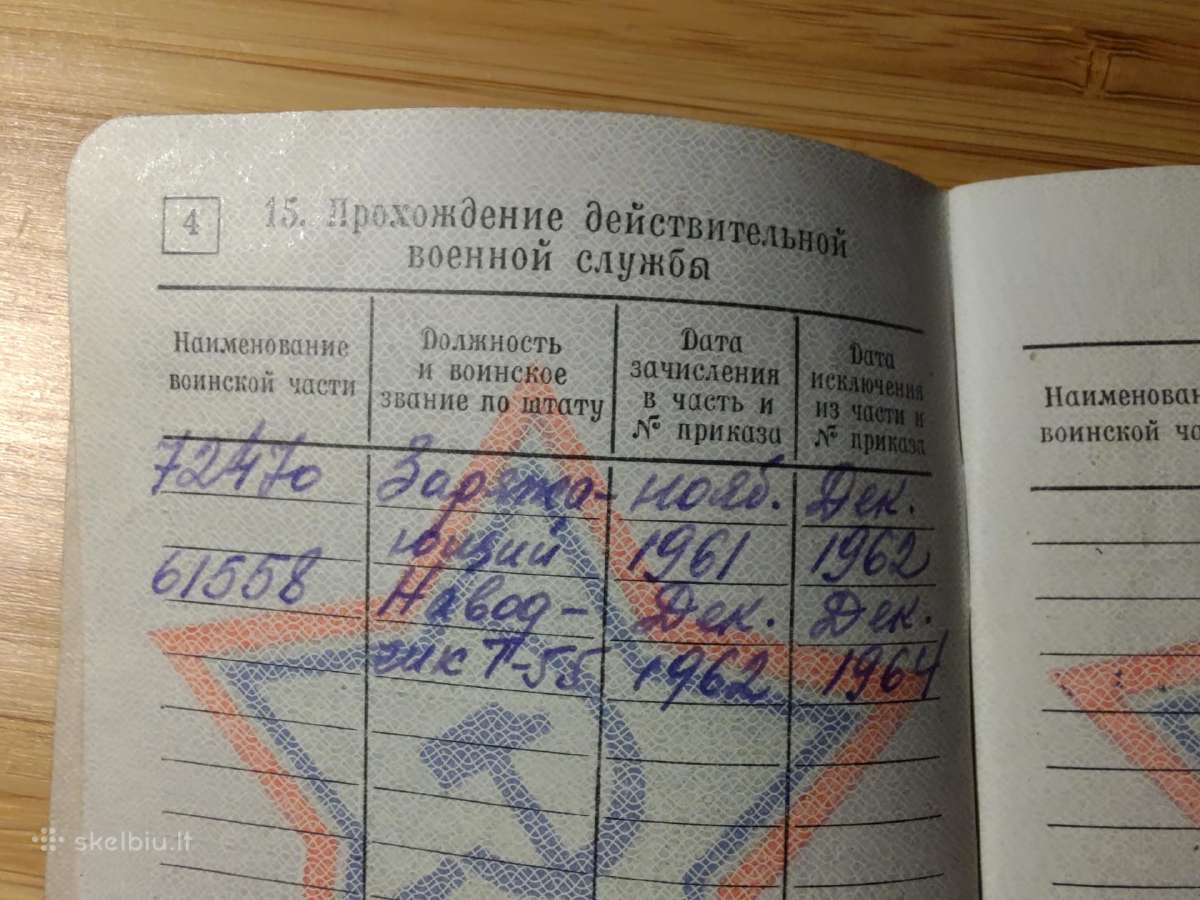 4
15. Прохождение действительной
военной службы
Наименование
воинской части
Должность
и воинское
звание по штату
Дата
зачисления
в часть и
№ приказа
Дата
исключения
из части и
№ приказа
72470 Заряжа- нояб. Дек.
ющий 1961 1962
61558 Навод- Дек. Дек.
чик Т-55 1962 1964
Наименован
воинской ча
skelbiu.lt